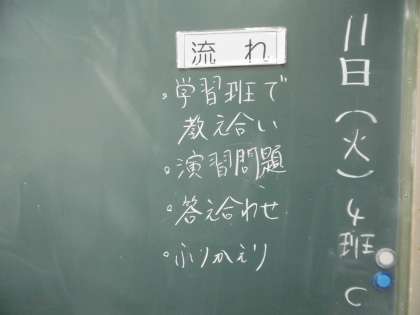 流れ
。学習班で
教え合い
。演習問題
。答え合わせ
。ふりかえり
11日(火)4班C